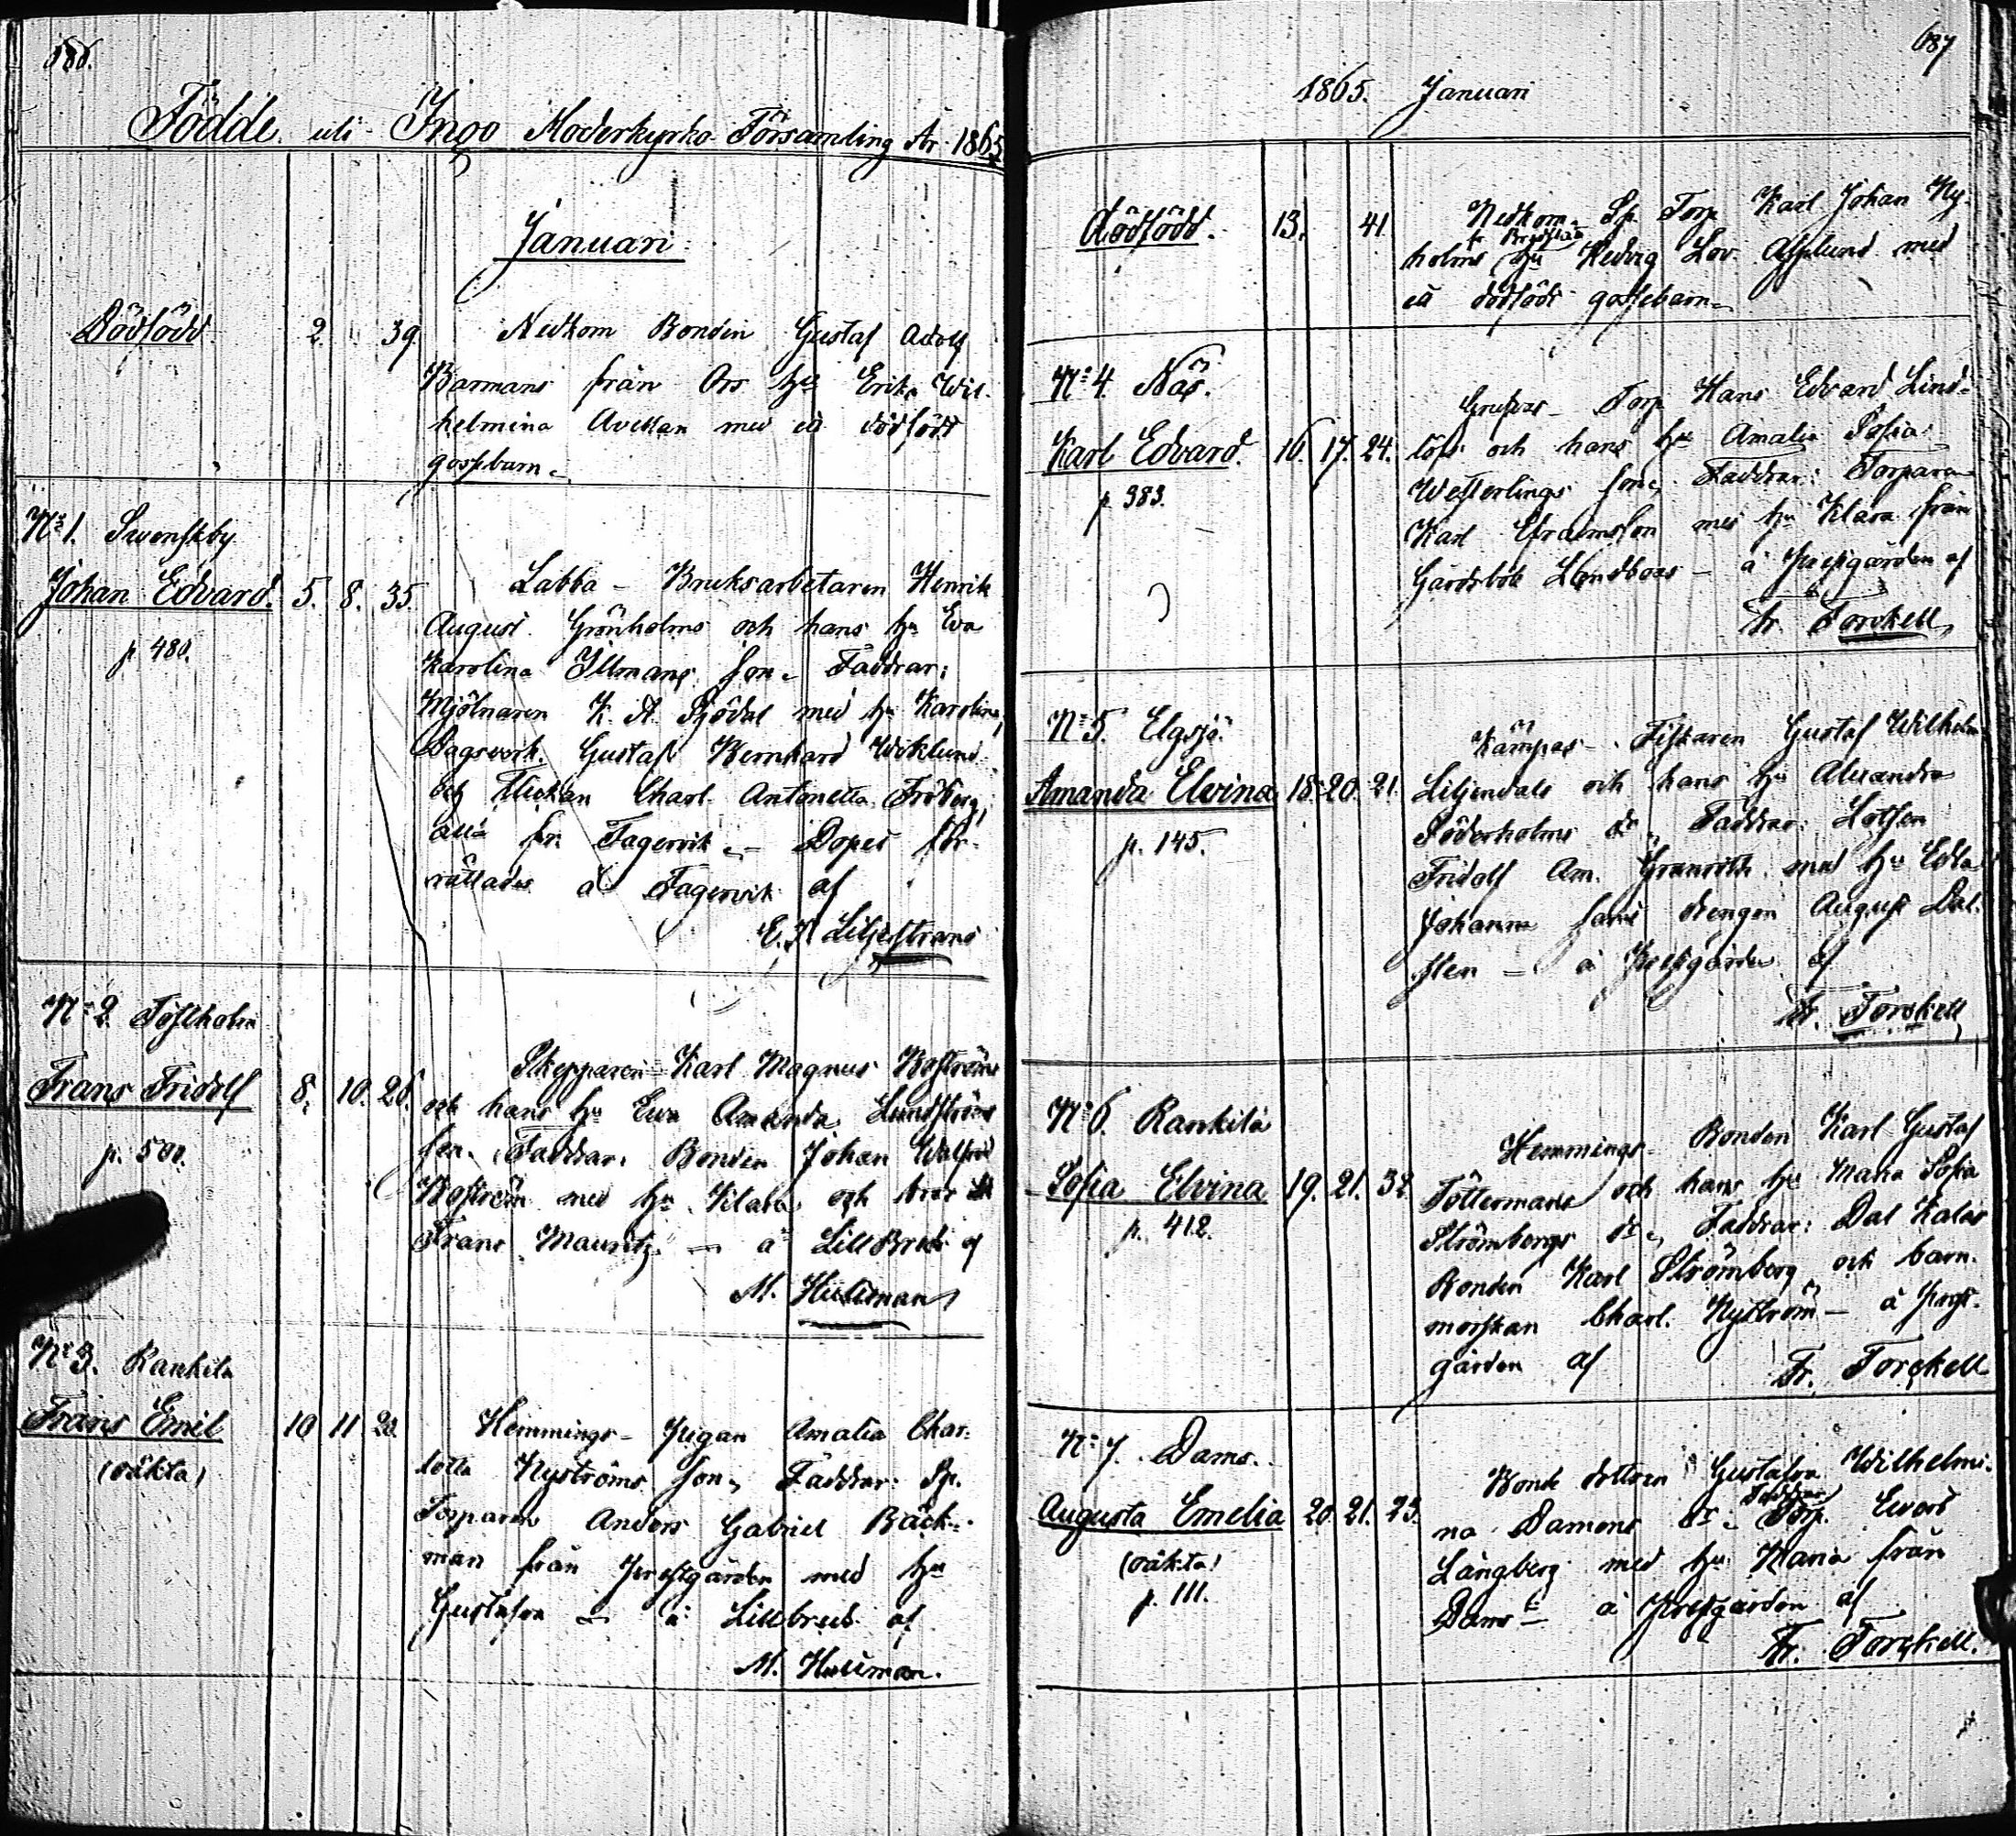 686.
Födde uti Ingo Moderkyrko Församling År 1865
Januari
Dödfödd 2. 39. Nedkom Bonden Gustaf Adolf
Barmans från Ors hu Erika Wil-
helmina Avellan med ett dödfödt
gossebarn.
No 1. Svenskby
Johan Edvard. 5. 8. 35. Labba - Bruksarbetaren Henrik
p 480. August Grönholms och hans hu Eva
Karolina Illmans son. Faddrar:
Mjölnaren K. A. Sjödal med hu Karolina,
Dagsverk. Gustaf Bernhard Wiklund
och Flickan Charl. Antonetta Fröberg,
alla fr. Fagervik. - Dopet för-
rättades å Fagervik af
E. J. Liljestrand
No 2. Töftholm
Frans Fridolf 8. 10. 26. Skepparen Karl Magnus Boströms
p. 500. och hans hu Eva Amanda Lundströms
son. Faddrar: Bonden Johan Walfrid
Boström med hu Klara och bror
Frans Mauritz. - å Lillbreds af
M. Hultman
No 3. Rankila
Frans Emil 10 11 20. Hemmings - Pigan Amalia Char-
(oäkta) lotta Nyströms son, Faddrar: Sp.
Torparen Anders Gabriel Bäck-
man från Prestgården med hu
Gustafva - å Lillbreds af
M. Hultman.
687
1865. Januari
Dödfödd. 13. 41 Nedkom Sp. Torp. Karl Johan Ny-
holms hu Hedvig Lov. Asplund med
ett dödfödt gossebarn
No 4. Näs.
Karl Edvard. 16. 17. 24. Torp. Hans Edvard Lind-
p. 383. löfs och hans hu Amalia Sofia
Westerlings son, Faddrar: Torparen
Karl Efraimsson med hu Klara från
Lindboas - å Prestgården af
Fr. Forskell
No 5. Elgsjö.
Amanda Elvina 18. 20. 21. Kämpas - Fiskaren Gustaf Wilhelm
p. 145. Liljendals och hans hu Alexandra
Söderholms dr, Faddrar: Lotsen
Fridolf Am. Granroth med hu Edla
Johanna samt drengen August Dal-
sten - å Prestgården af
Fr. Forskell
No 6. Rankila
Sofia Elvina 19. 21. 32. Hemmings - Bonden Karl Gustaf
p. 412. Töttermans och hans hu Maria Sofia
Strömbergs dr, Faddrar: Dal Kalas
Bonden Karl Strömberg och barn-
morskan Charl. Nyström - å Prest-
gården af Fr. Forskell
No 7. Dams.
Augusta Emelia 20. 21. 23. Bonde dottren Gustafva Wilhelmi-
(oäkta) na Damens dr. Faddrar Torp. Evert
p. 111. Långberg med hu Maria från
Dams - å Prestgården af
Fr. Forskell.